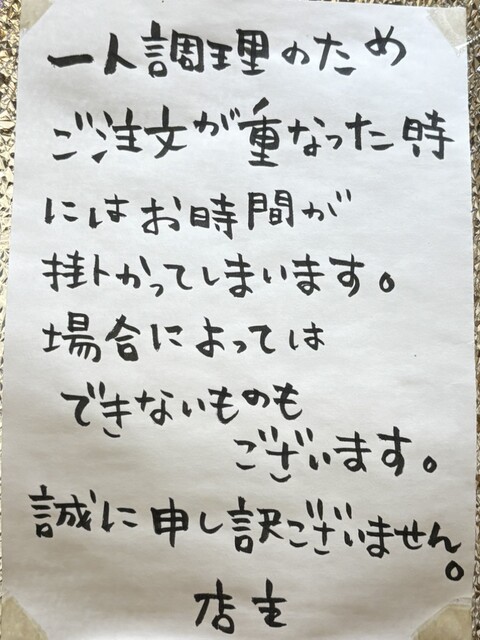 一人調理のため
ご注文が重なった時
にはお時間が
掛かってしまいます。
場合によっては
できないものも
ございます。
誠に申し訳ございません。
店主